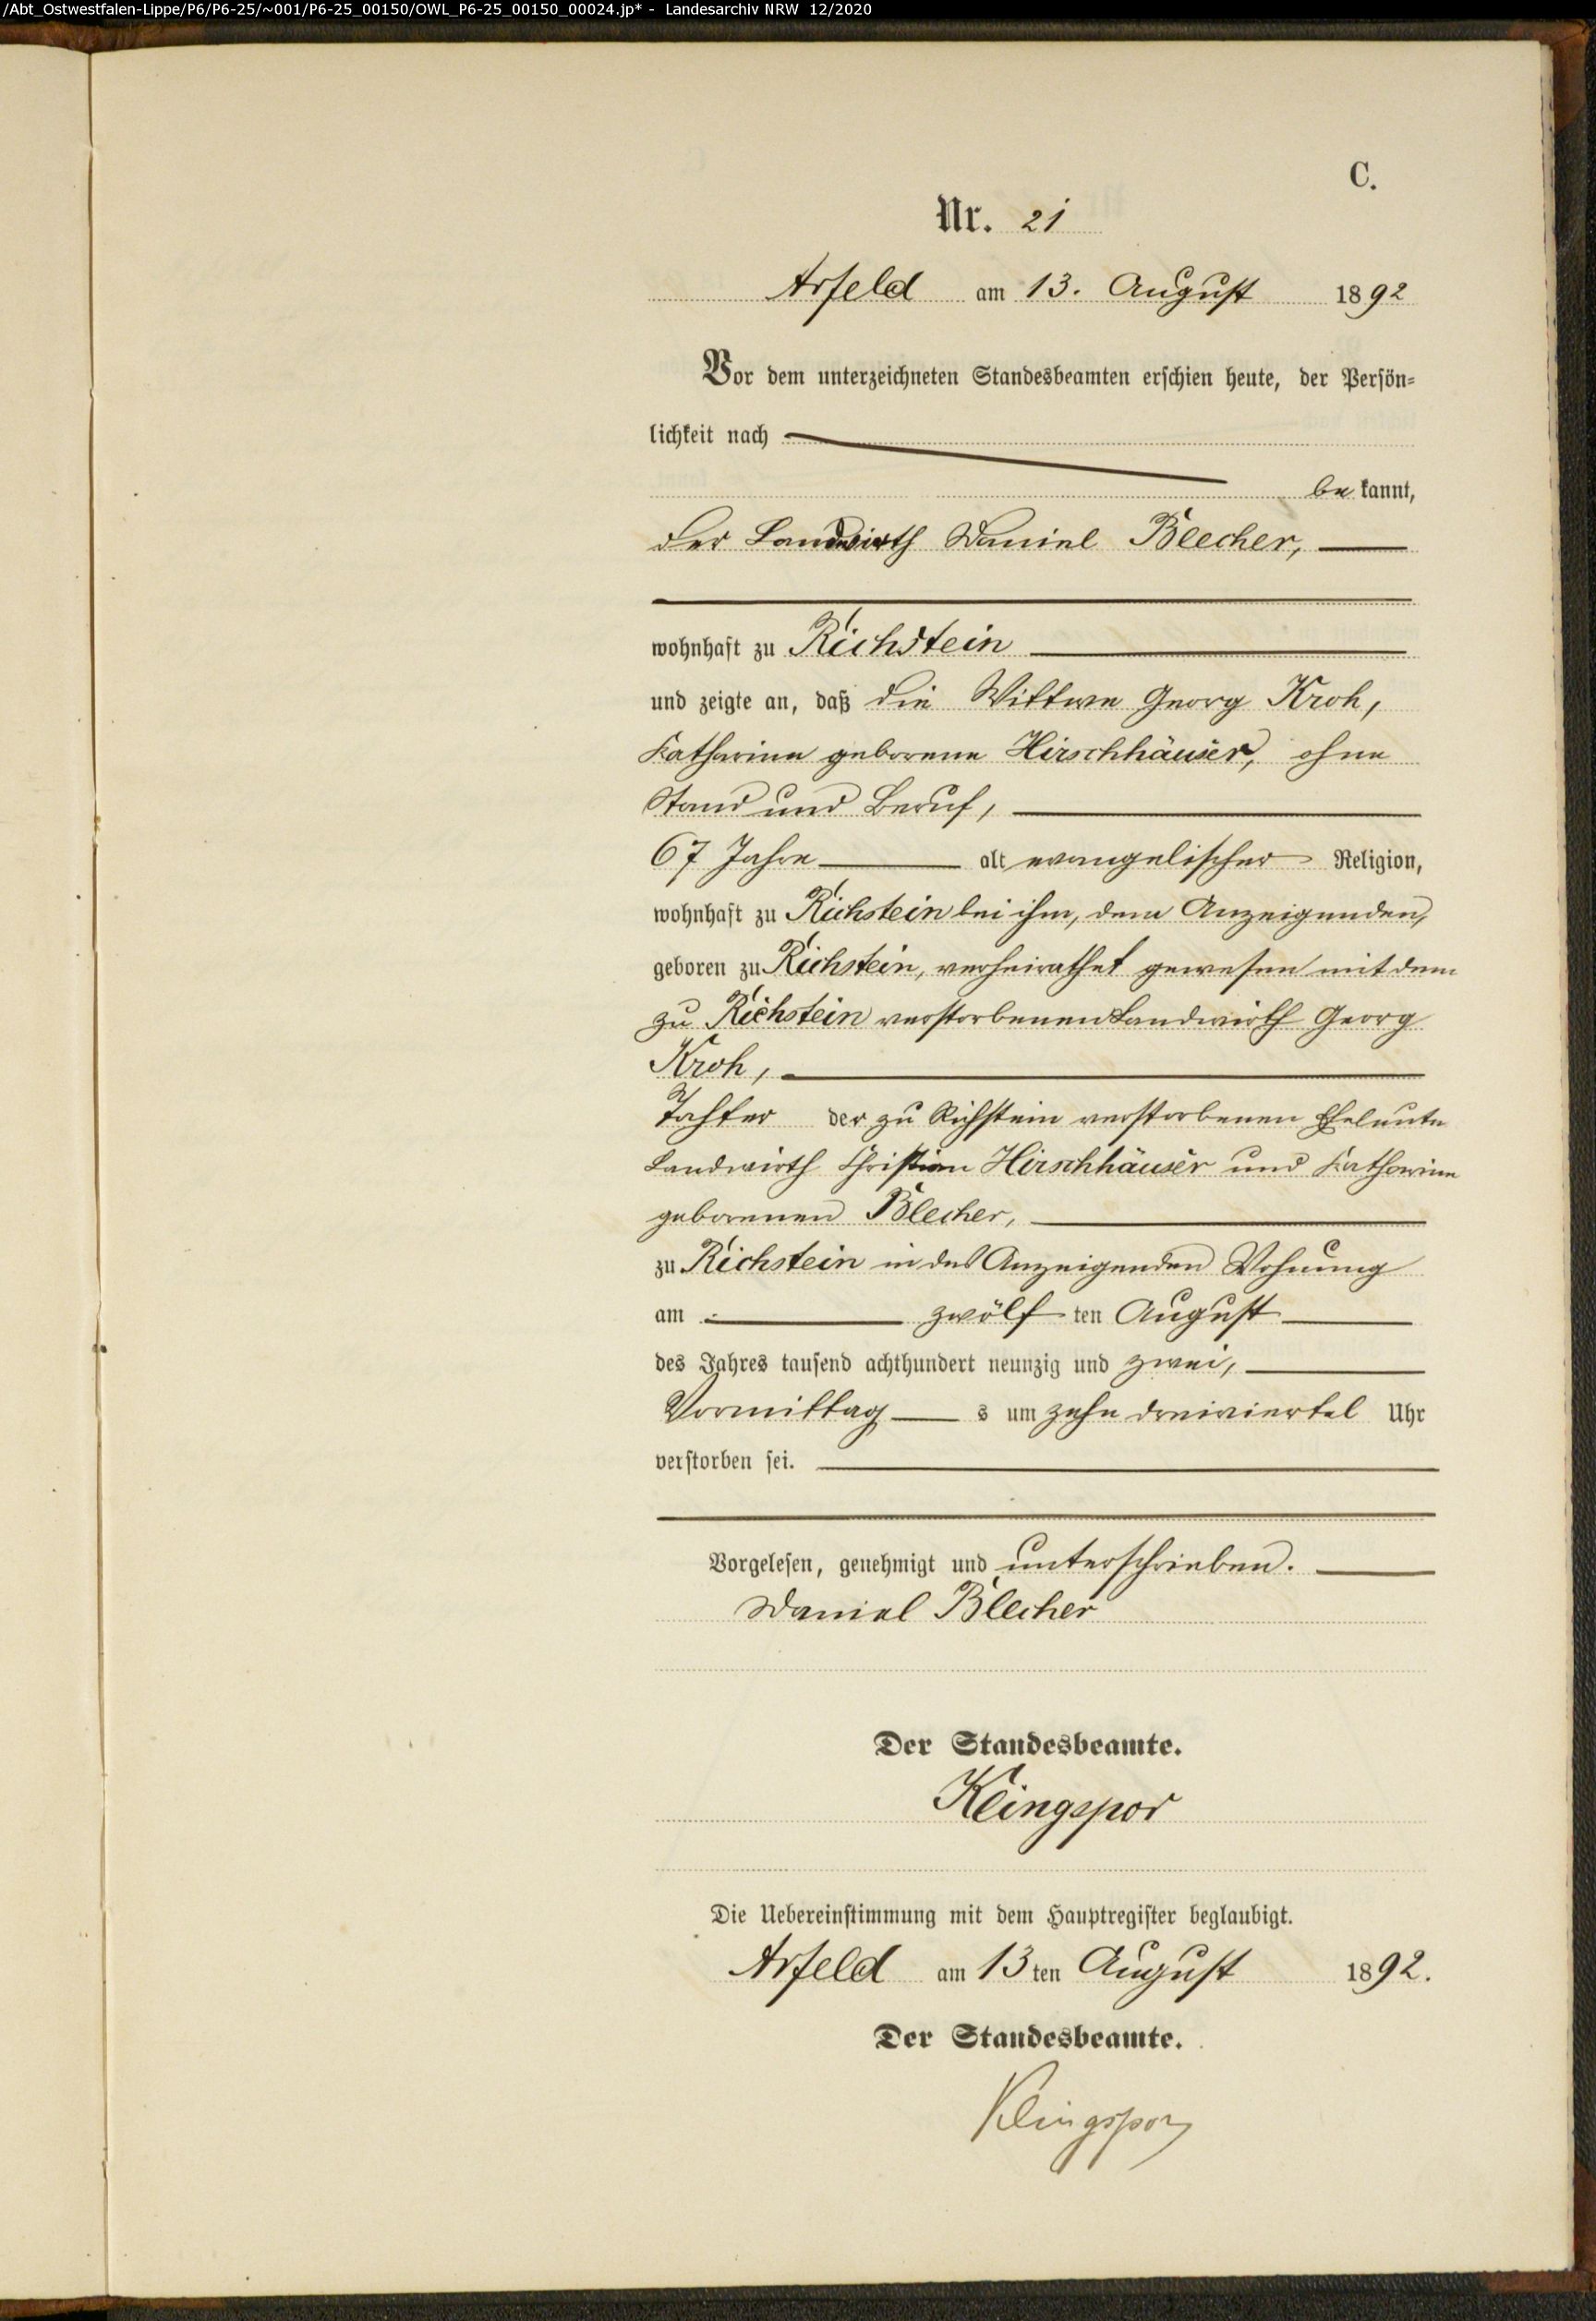 /Abt_Ostwestfalen-Lippe/P6/P6-25/~001/P6-25_00150/OWL_P6-25_00150_00024.jp* - Landesarchiv NRW 12/2020
C.
Nr. 21
Arfeld am 13. August 1892
Vor dem unterzeichneten Standesbeamten erschien heute, der Persön-
lichkeit nach
bekannt,
der Landwirth Daniel Blecher,
wohnhaft zu Richstein
und zeigte an, daß die Wittwe Georg Kroh,
Katharine geborene Hirschhäuser, ohne
Stand und Beruf,
67 Jahre alt evangelischer Religion,
wohnhaft zu Richstein bei ihm, dem Anzeigenden,
geboren zu Richstein, verheirathet gewesen mit dem
zu Richstein verstorbenen Landwirth Georg
Kroh,
Tochter der zu Richstein verstorbenen Eheleute
Landwirth Christian Hirschhäuser und Katharine
geborenen Blecher,
zu Richstein in des Anzeigenden Wohnung
am zwölften August
des Jahres tausend achthundert neunzig und zwei,
Vormittags um zehn dreiviertel Uhr
verstorben sei.
Vorgelesen, genehmigt und unterschrieben.
Daniel Blecher
Der Standesbeamte.
Klingspor
Die Uebereinstimmung mit dem Hauptregister beglaubigt.
Arfeld am 13ten August 1892.
Der Standesbeamte.
Klingspor